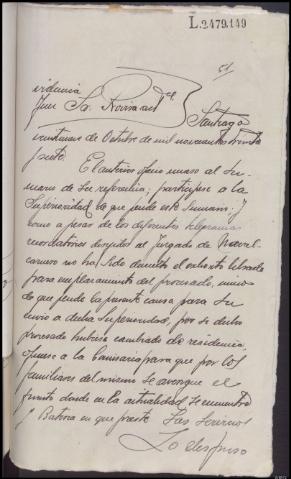 L.2479.149
51
videncia
Juez Sr.
Santiago
veintiuno de Octubre de mil novecientos treinta
y siete
El anterior oficio unase al su-
mario de su referencia; participese a la
Superioridad de que pende este sumario. Y
como a pesar de los diferentes telegramas
recordatorios dirigidos al juzgado de
no ha sido devuelto el exhorto librado
para emplazamiento del procesado, unico
de que pende la presente causa para su
envio a dicha Superioridad, por si dicho
procesado hubiese cambiado de residencia,
ofíciese a la Comisaria para que por los
familiares del mismo se averigue el
punto donde en la actualidad se encuentra
y Bateria en que presta sus servicios
Lo dispuso